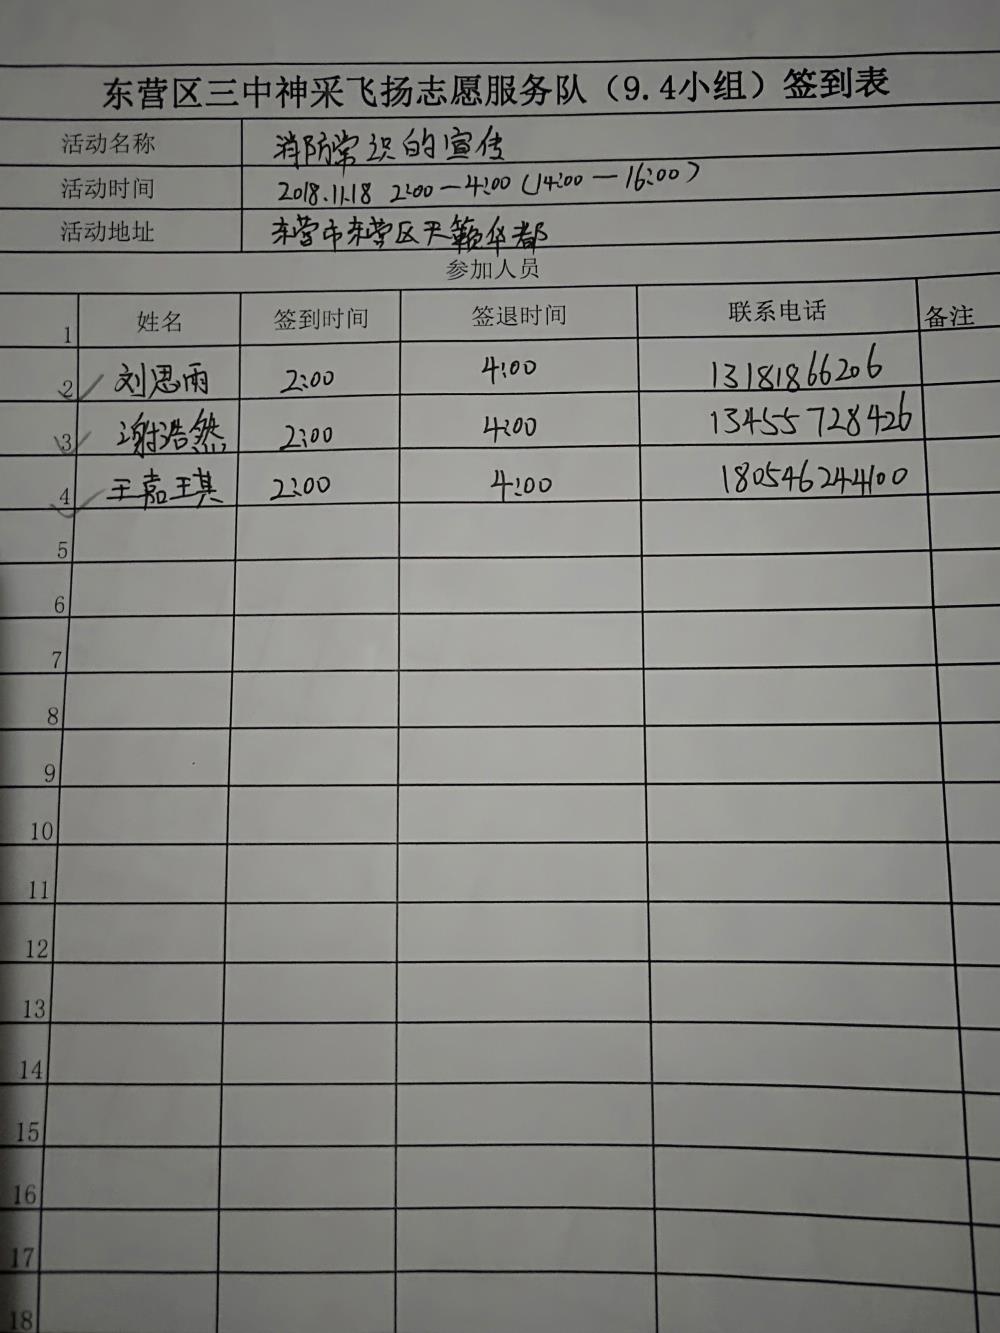 东营区三中神采飞扬志愿服务队（9.4小组）签到表
活动名称 消防常识的宣传
活动时间 2018.11.18 2:00—4:00（14:00—16:00）
活动地址 东营市东营区天籁华都
参加人员
1 姓名 签到时间 签退时间 联系电话 备注
2 刘思雨 2:00 4:00 13181866206
3 谢浩然 2:00 4:00 13455728426
4 王嘉琪 2:00 4:00 18054624400
5
6
7
8
9
10
11
12
13
14
15
16
17
18